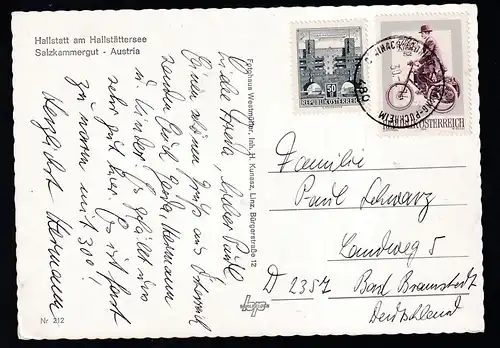 Hallstatt am Hallstättersee
Salzkammergut - Austria
Liebe Herta, lieber Paul
Einen schönen Gruß aus Österreich
senden Euch Gerda, Hermann
u. Kinder. Es gefällt uns
sehr gut hier. Es ist fast
zu warm mit 30°!
Herzlichst Hermann
Nr 212
Fotohaus Westmüller, Inh. H. Kunasz, Linz, Bürgerstraße 12
50
REPUBLIK ÖSTERREICH
REPUBLIK ÖSTERREICH
Familie
Paul Schwarz
Landweg 5
D 2357 Bad Bramstedt
Deutschland